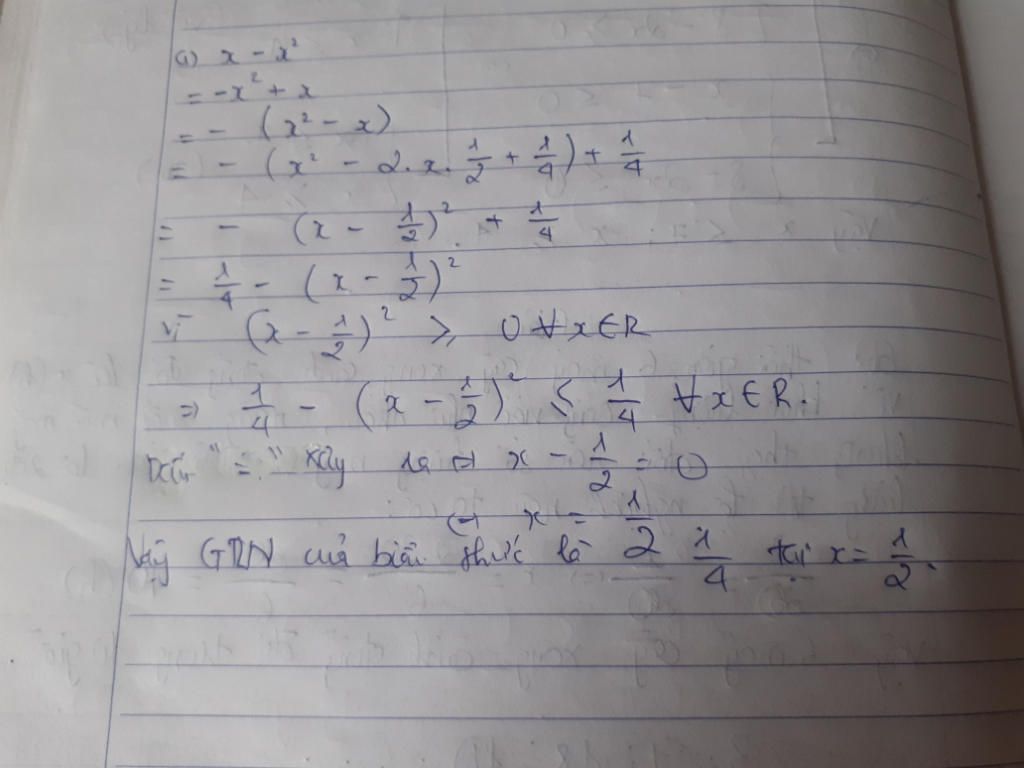 a) x - x²
= -x² + x
= - (x² - x)
= - (x² - 2.x.1/2 + 1/4) + 1/4
= - (x - 1/2)² + 1/4
= 1/4 - (x - 1/2)²
Vì (x - 1/2)² ≥ 0 ∀x∈R
⇒ 1/4 - (x - 1/2)² ≤ 1/4 ∀x∈R.
Dấu "=" xảy ra ⇔ x - 1/2 = 0
⇔ x = 1/2
Vậy GTLN của biểu thức là 1/4 tại x = 1/2.